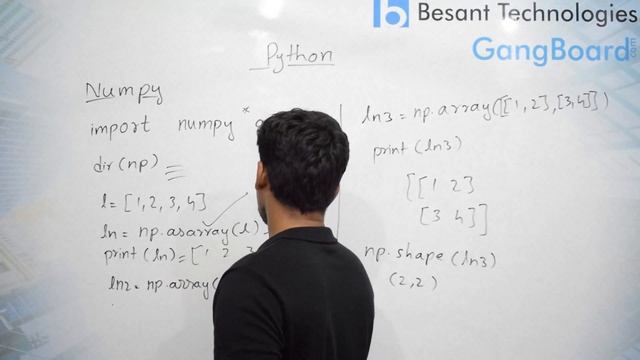 Besant Technologies
GangBoard
Python
Numpy
import numpy *
dir(np)
l = [1, 2, 3, 4]
ln = np.asarray(l)
print (ln) = [1 2 3
ln2 = np.array(
ln3 = np.array([[1, 2], [3, 4]])
print (ln3)
[[1 2]
[3 4]]
np.shape (ln3)
(2, 2)